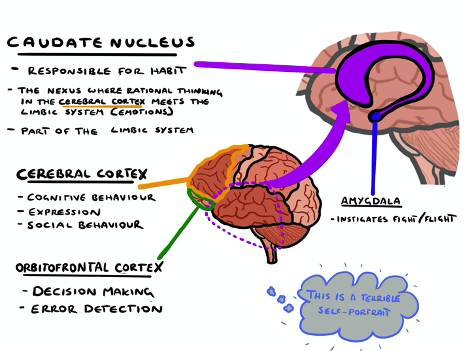 CAUDATE NUCLEUS
- RESPONSIBLE FOR HABIT
- THE NEXUS WHERE RATIONAL THINKING
IN THE CEREBRAL CORTEX MEETS THE
LIMBIC SYSTEM (EMOTIONS)
- PART OF THE LIMBIC SYSTEM
CEREBRAL CORTEX
- COGNITIVE BEHAVIOUR
- EXPRESSION
- SOCIAL BEHAVIOUR
AMYGDALA
- INSTIGATES FIGHT/FLIGHT
ORBITOFRONTAL CORTEX
- DECISION MAKING
- ERROR DETECTION
THIS IS A TERRIBLE
SELF-PORTRAIT